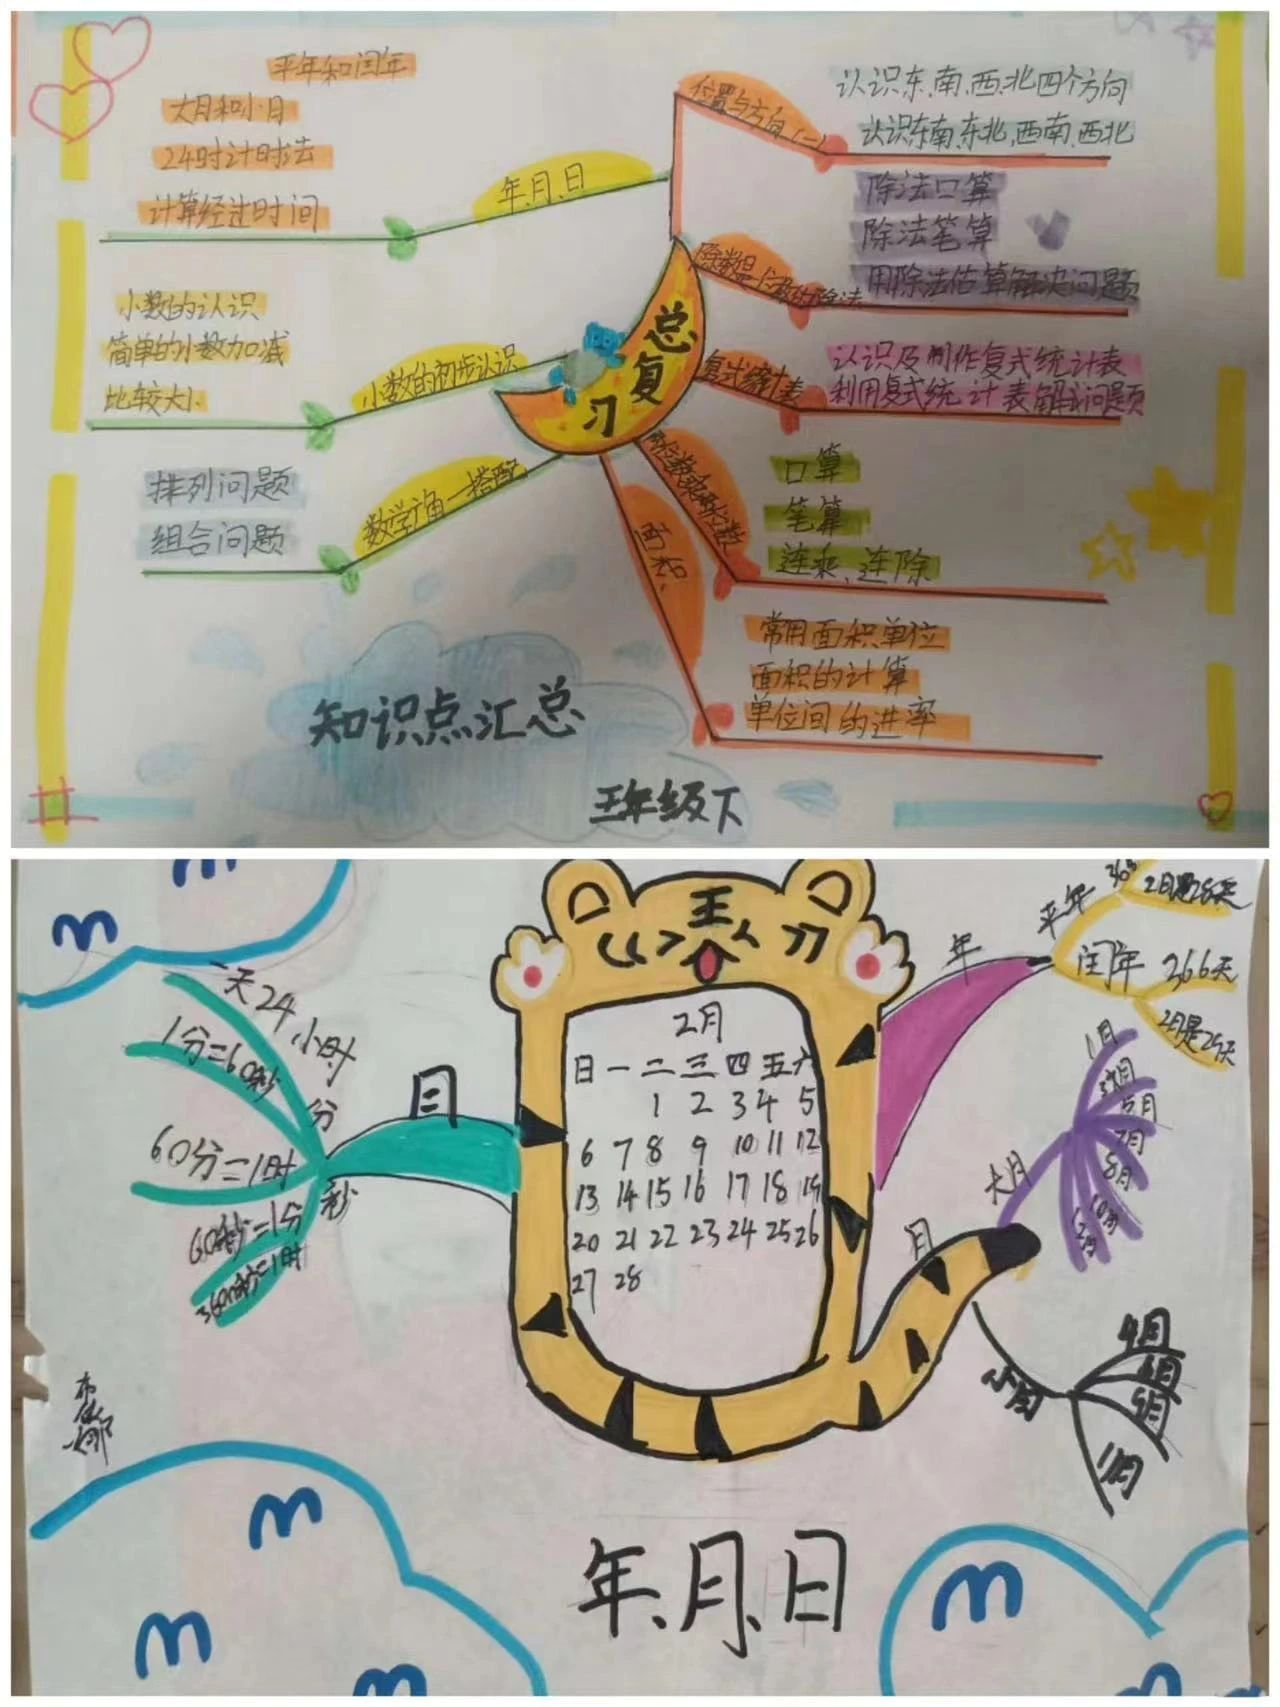 平年和闰年
大月和小月
24时计时法
计算经过时间
年.月.日
小数的认识
简单的小数加减
比较大小
小数的初步认识
排列问题
组合问题
数学广角一搭配
总复习
位置与方向(一)
认识东、南、西、北四个方向
认识东南、东北、西南、西北
除法口算
除法笔算
用除法估算解决问题
除数是一位数的除法
复式统计表
认识及制作复式统计表
利用复式统计表解决问题
两位数乘两位数
口算
笔算
连乘、连除
面积
常用面积单位
面积的计算
单位间的进率
知识点汇总
三年级下
王
2月
日 一 二 三 四 五 六
1 2 3 4 5
6 7 8 9 10 11 12
13 14 15 16 17 18 19
20 21 22 23 24 25 26
27 28
日
一天24小时
1分=60秒
60分=1时
60秒=1分
3600秒=1时
分
秒
年
平年
2月是28天
闰年 366天
2月是29天
月
大月
1月
3月
5月
7月
8月
10月
12月
小月
4月
6月
9月
11月
年、月、日